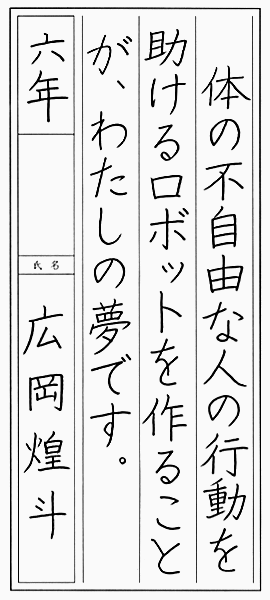 体の不自由な人の行動を
助けるロボットを作ること
が、わたしの夢です。
六年
氏名
広岡煌斗